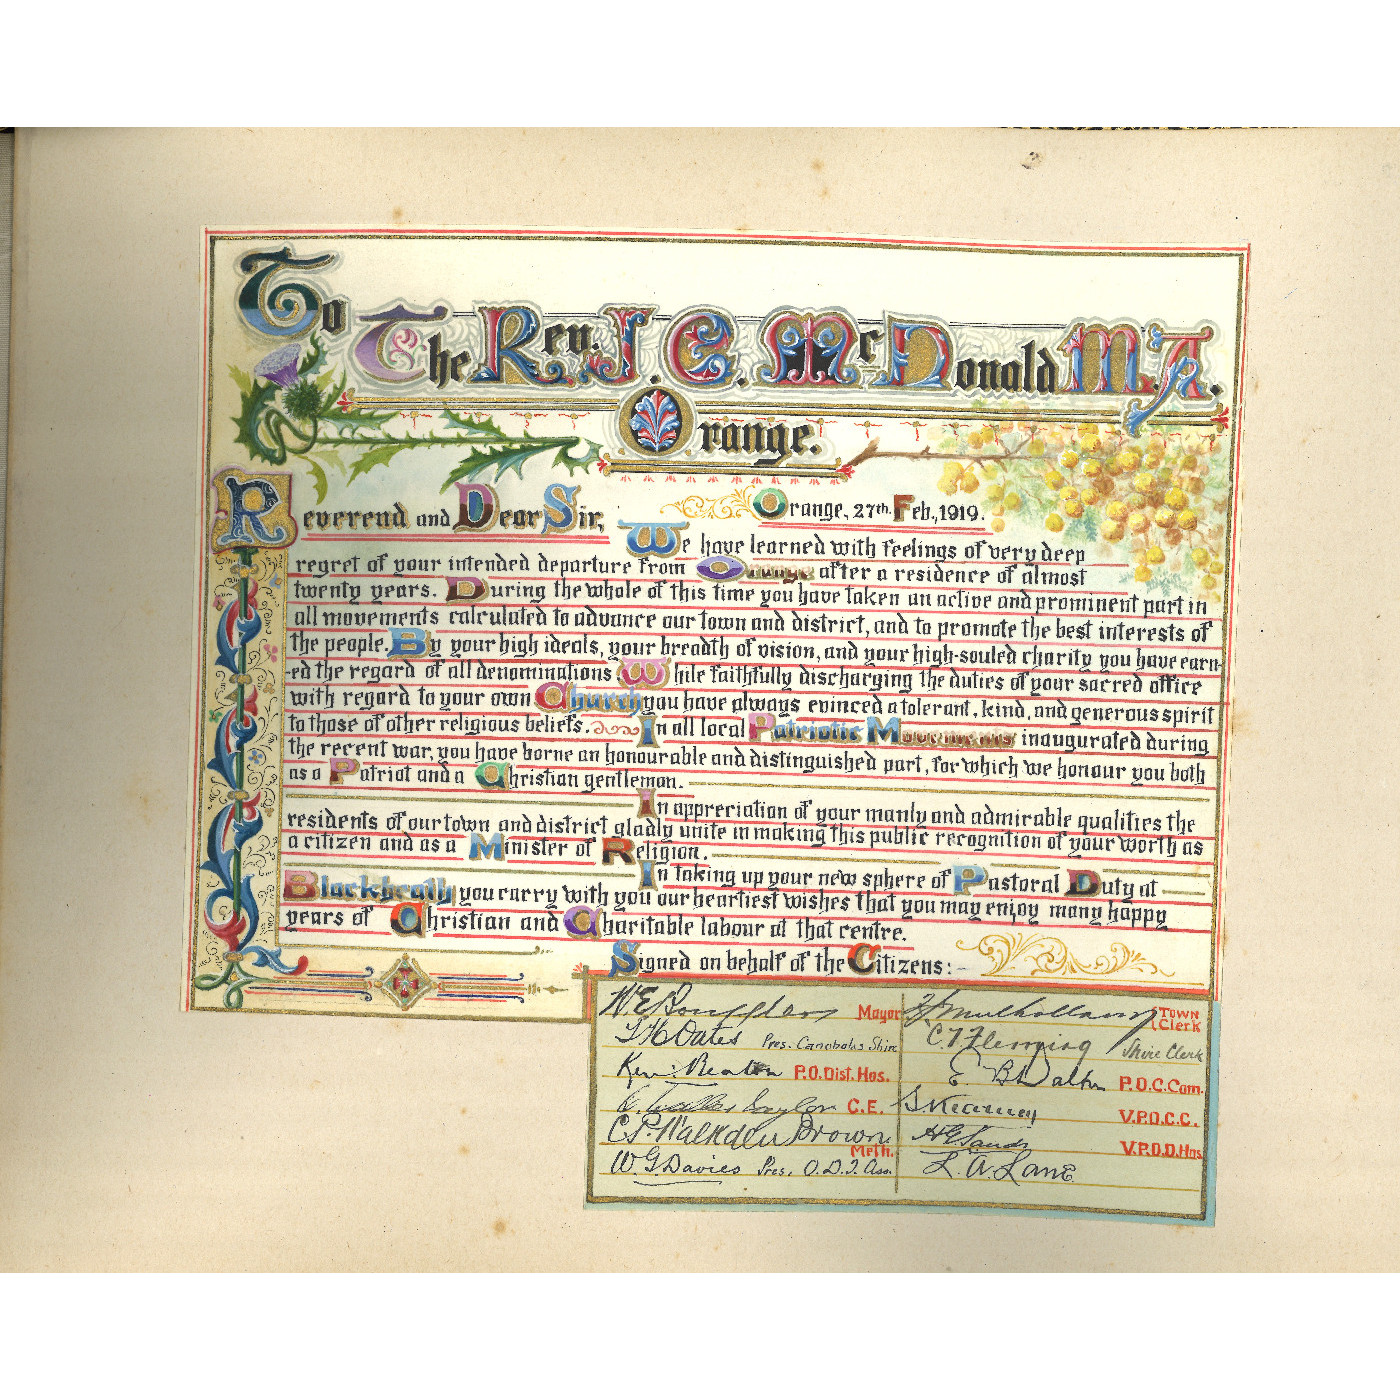 To
The Rev. J. E. McDonald M.A.
Orange.
Orange, 27th. Feb., 1919.
Reverend and Dear Sir,
We have learned with feelings of very deep
regret of your intended departure from Orange after a residence of almost
twenty years. During the whole of this time you have taken an active and prominent part in
all movements calculated to advance our town and district, and to promote the best interests of
the people. By your high ideals, your breadth of vision, and your high-souled charity you have earn-
-ed the regard of all denominations While faithfully discharging the duties of your sacred office
with regard to your own Church you have always evinced a tolerant, kind, and generous spirit
to those of other religious beliefs. In all local Patriotic Movements inaugurated during
the recent war, you have borne an honourable and distinguished part, for which we honour you both
as a Patriot and a Christian gentleman.
In appreciation of your manly and admirable qualities the
residents of our town and district gladly unite in making this public recognition of your worth as
a citizen and as a Minister of Religion.
In taking up your new sphere of Pastoral Duty at
Blackheath you carry with you our heartiest wishes that you may enjoy many happy
years of Christian and Charitable labour at that centre.
Signed on behalf of the Citizens:-
Mayor
Mulholland Town Clerk
T H Oates Pres. Canobolas Shire
C. J. Fleming Shire Clerk
P.O. Dist. Hos.
E B Dalton P.O.C. Com.
C.E.
S. Kearney V.P.O.C.C.
C P Walkden Brown Meth.
V.P.O.D. Hos
W G Davies Pres. O.D.J. Ass.
L. A. Lane